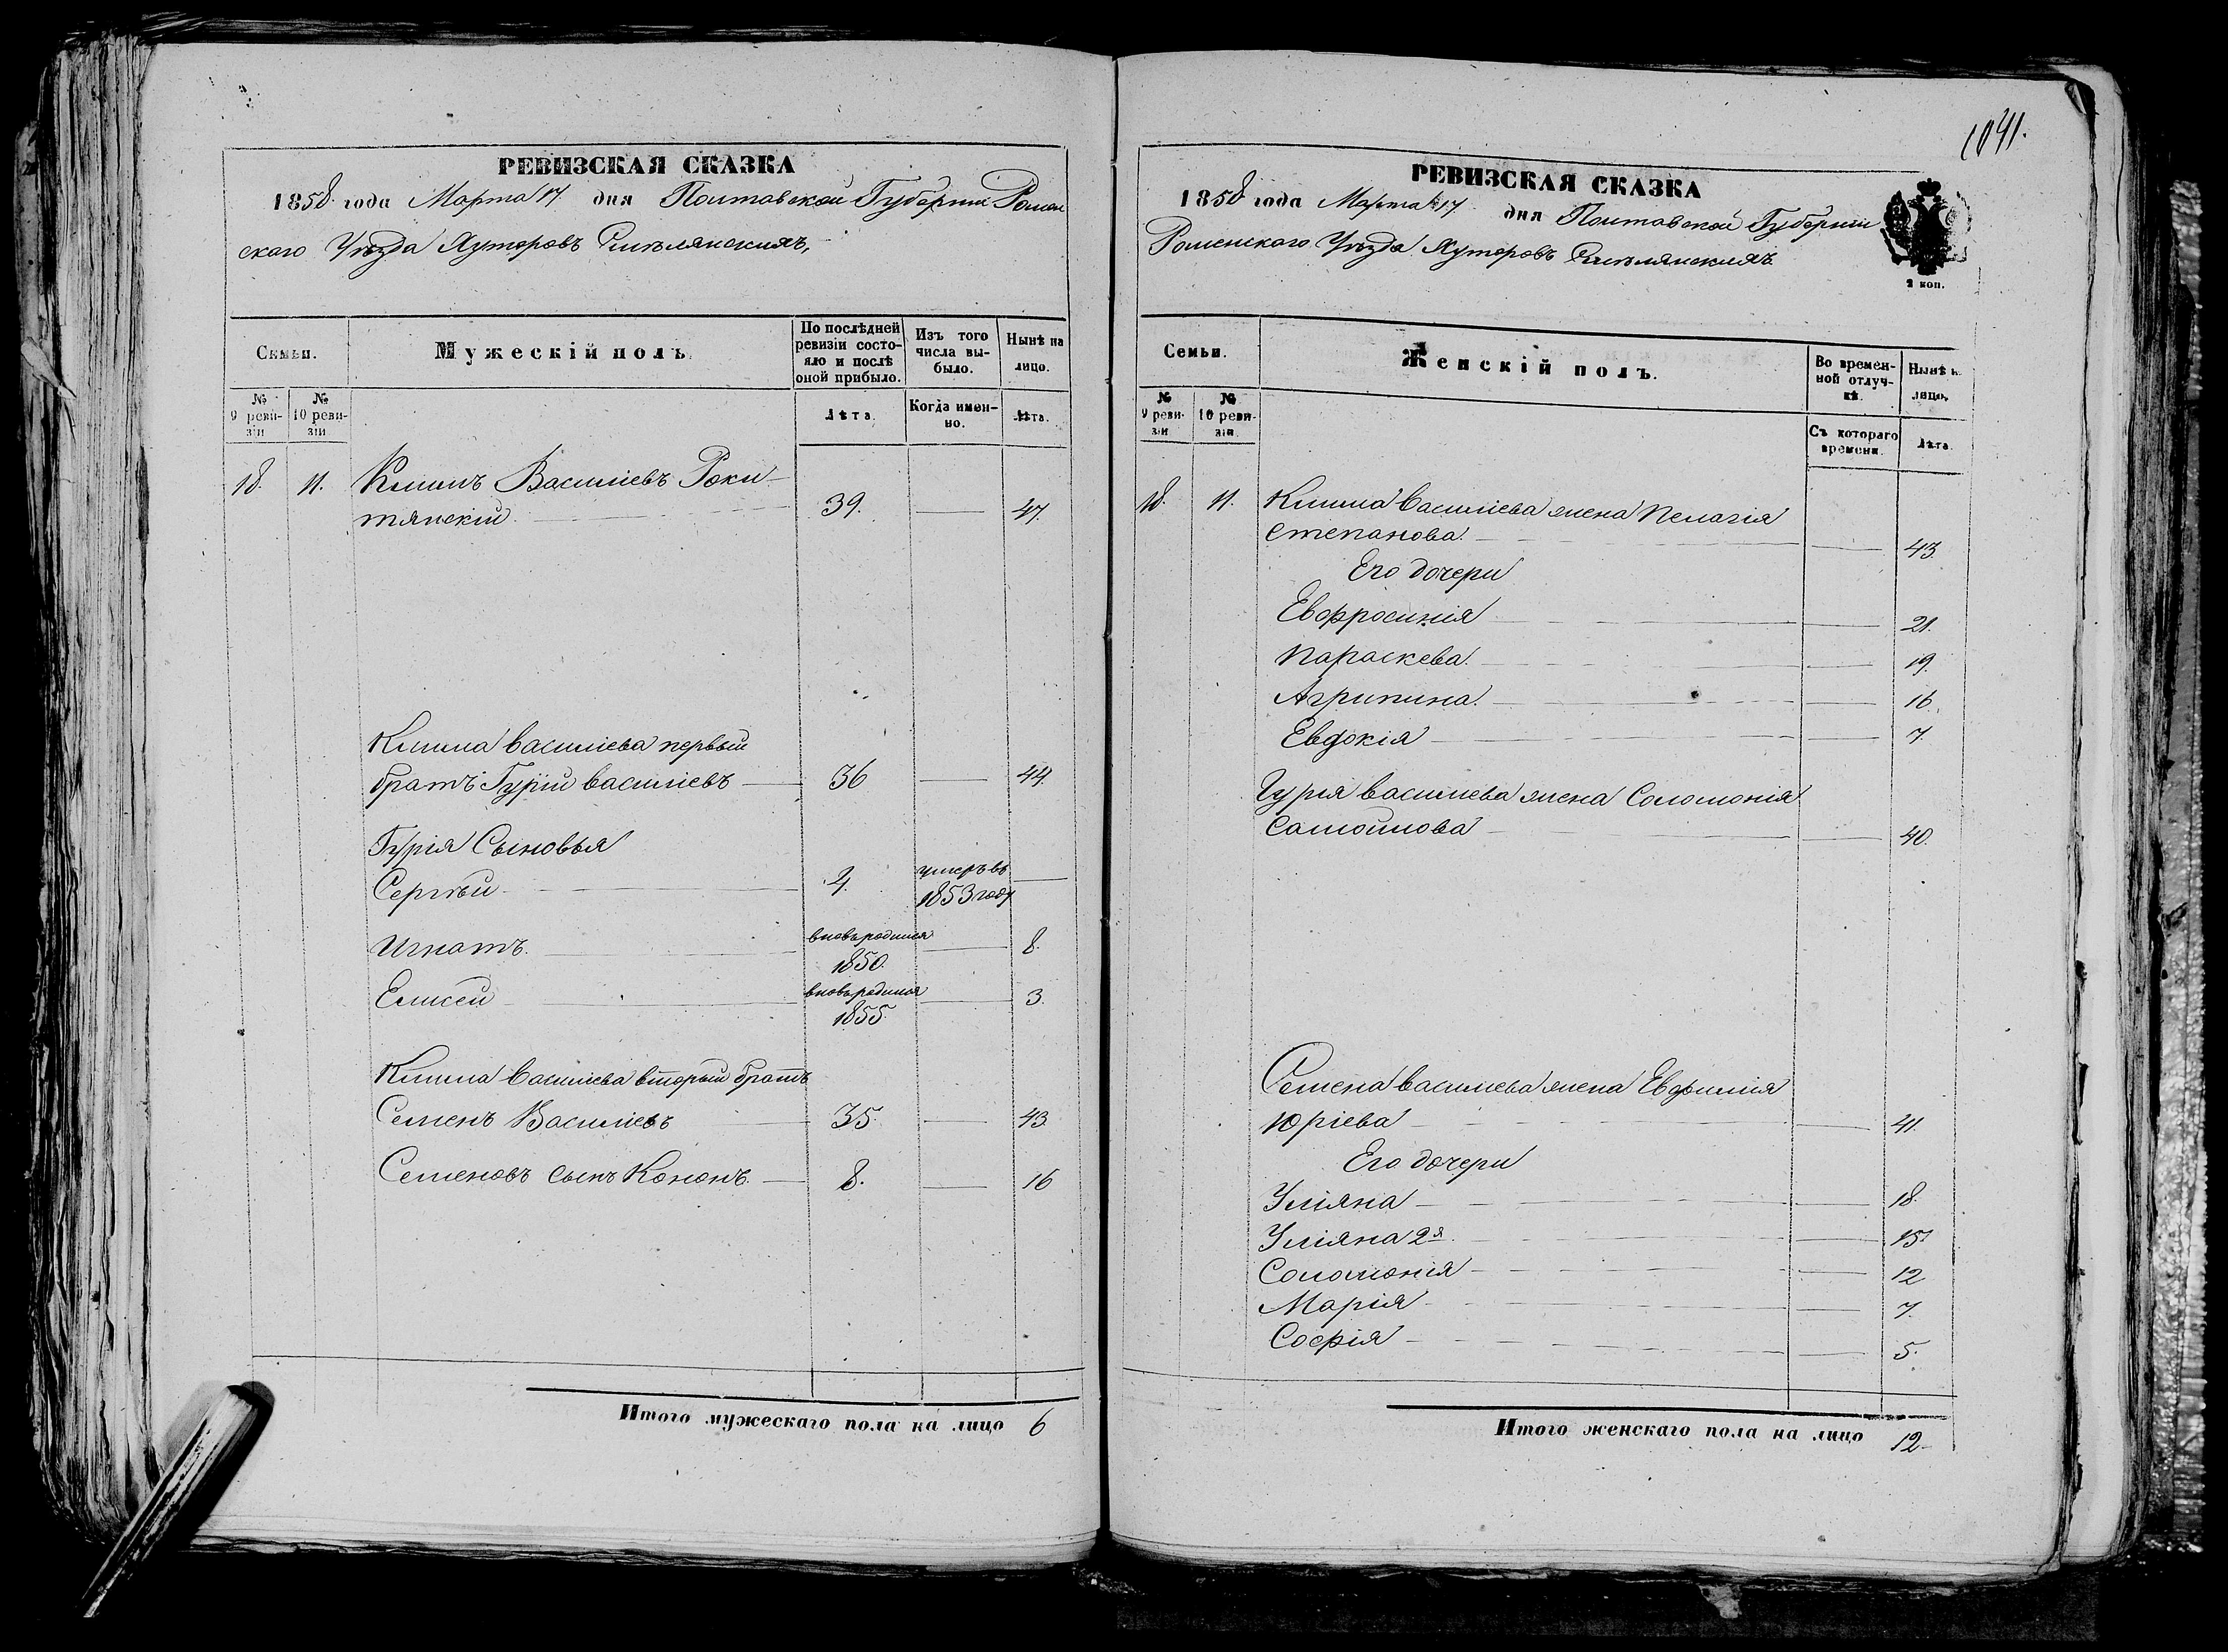 1041.
РЕВИЗСКАЯ СКАЗКА
1858 года Марта 17. дня Полтавской Губерніи Ромен
скаго Уѣзда Хуторовъ Смѣлянскихъ,
Семьи.
Мужескій полъ.
По послѣдней ревизіи состояло и послѣ оной прибыло.
Изъ того числа выбыло.
Нынѣ на лицо.
№ 9 ревизіи
№ 10 ревизіи
Лѣта.
Когда именно.
Лѣта.
18. 11. Климъ Василіевъ Роки-
тянскій. 39. — 47.
Клима Василіева первый
братъ Гурій Василіевъ — 36 — 44.
Гурія Сыновья
Сергѣй 4. умеръ въ 1853 году —
Игнатъ. вновь родился 1850. — 8.
Елисей вновь родился 1855. — 3.
Клима Василіева вторый братъ
Семенъ Василіевъ 35. — 43.
Семеновъ сынъ Кононъ. — 8. — 16
Итого мужескаго пола на лицо 6
РЕВИЗСКАЯ СКАЗКА
1858 года Марта 17 дня Полтавской Губерніи
Роменскаго Уѣзда Хуторовъ Смѣлянскихъ
2 коп.
Семьи.
Женскій полъ.
Во временной отлучкѣ.
Нынѣ н. лицо,
№ 9 ревизіи
№ 10 ревизіи.
Съ котораго времени.
Лѣта.
18. 11. Клима Василіева жена Пелагія
Степанова. — 43.
Его дочери
Евфросинія — 21.
Параскева. — 19.
Агрипина. — 16.
Евдокія — 7.
Гурія Василиева жена Соломонія
Самойлова — 40.
Семена Василиева жена Евфимія
Юріева — 41.
Его дочери
Уліяна — 18.
Уліяна 2я. — 15
Соломонія — 12
Марія — 7.
Софія — 5.
Итого женскаго пола на лицо 12